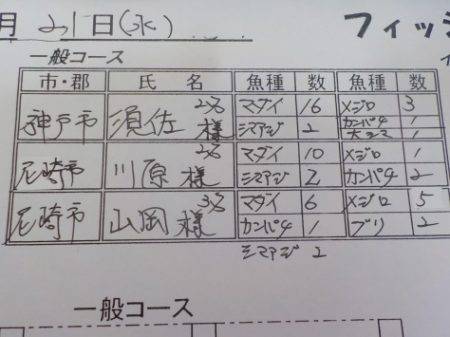 月 21日(水) フィッシ
一般コース
市・郡 氏 名 魚種 数 魚種 数
神戸市 須佐 様 マダイ 16 メジロ 3
シマアジ 2 カンパチ 1
1
尼崎市 川原 様 マダイ 10 メジロ 1
シマアジ 2 カンパチ 2
尼崎市 山岡 様 マダイ 6 メジロ 5
カンパチ 1 ブリ 2
シマアジ 2
一般コース